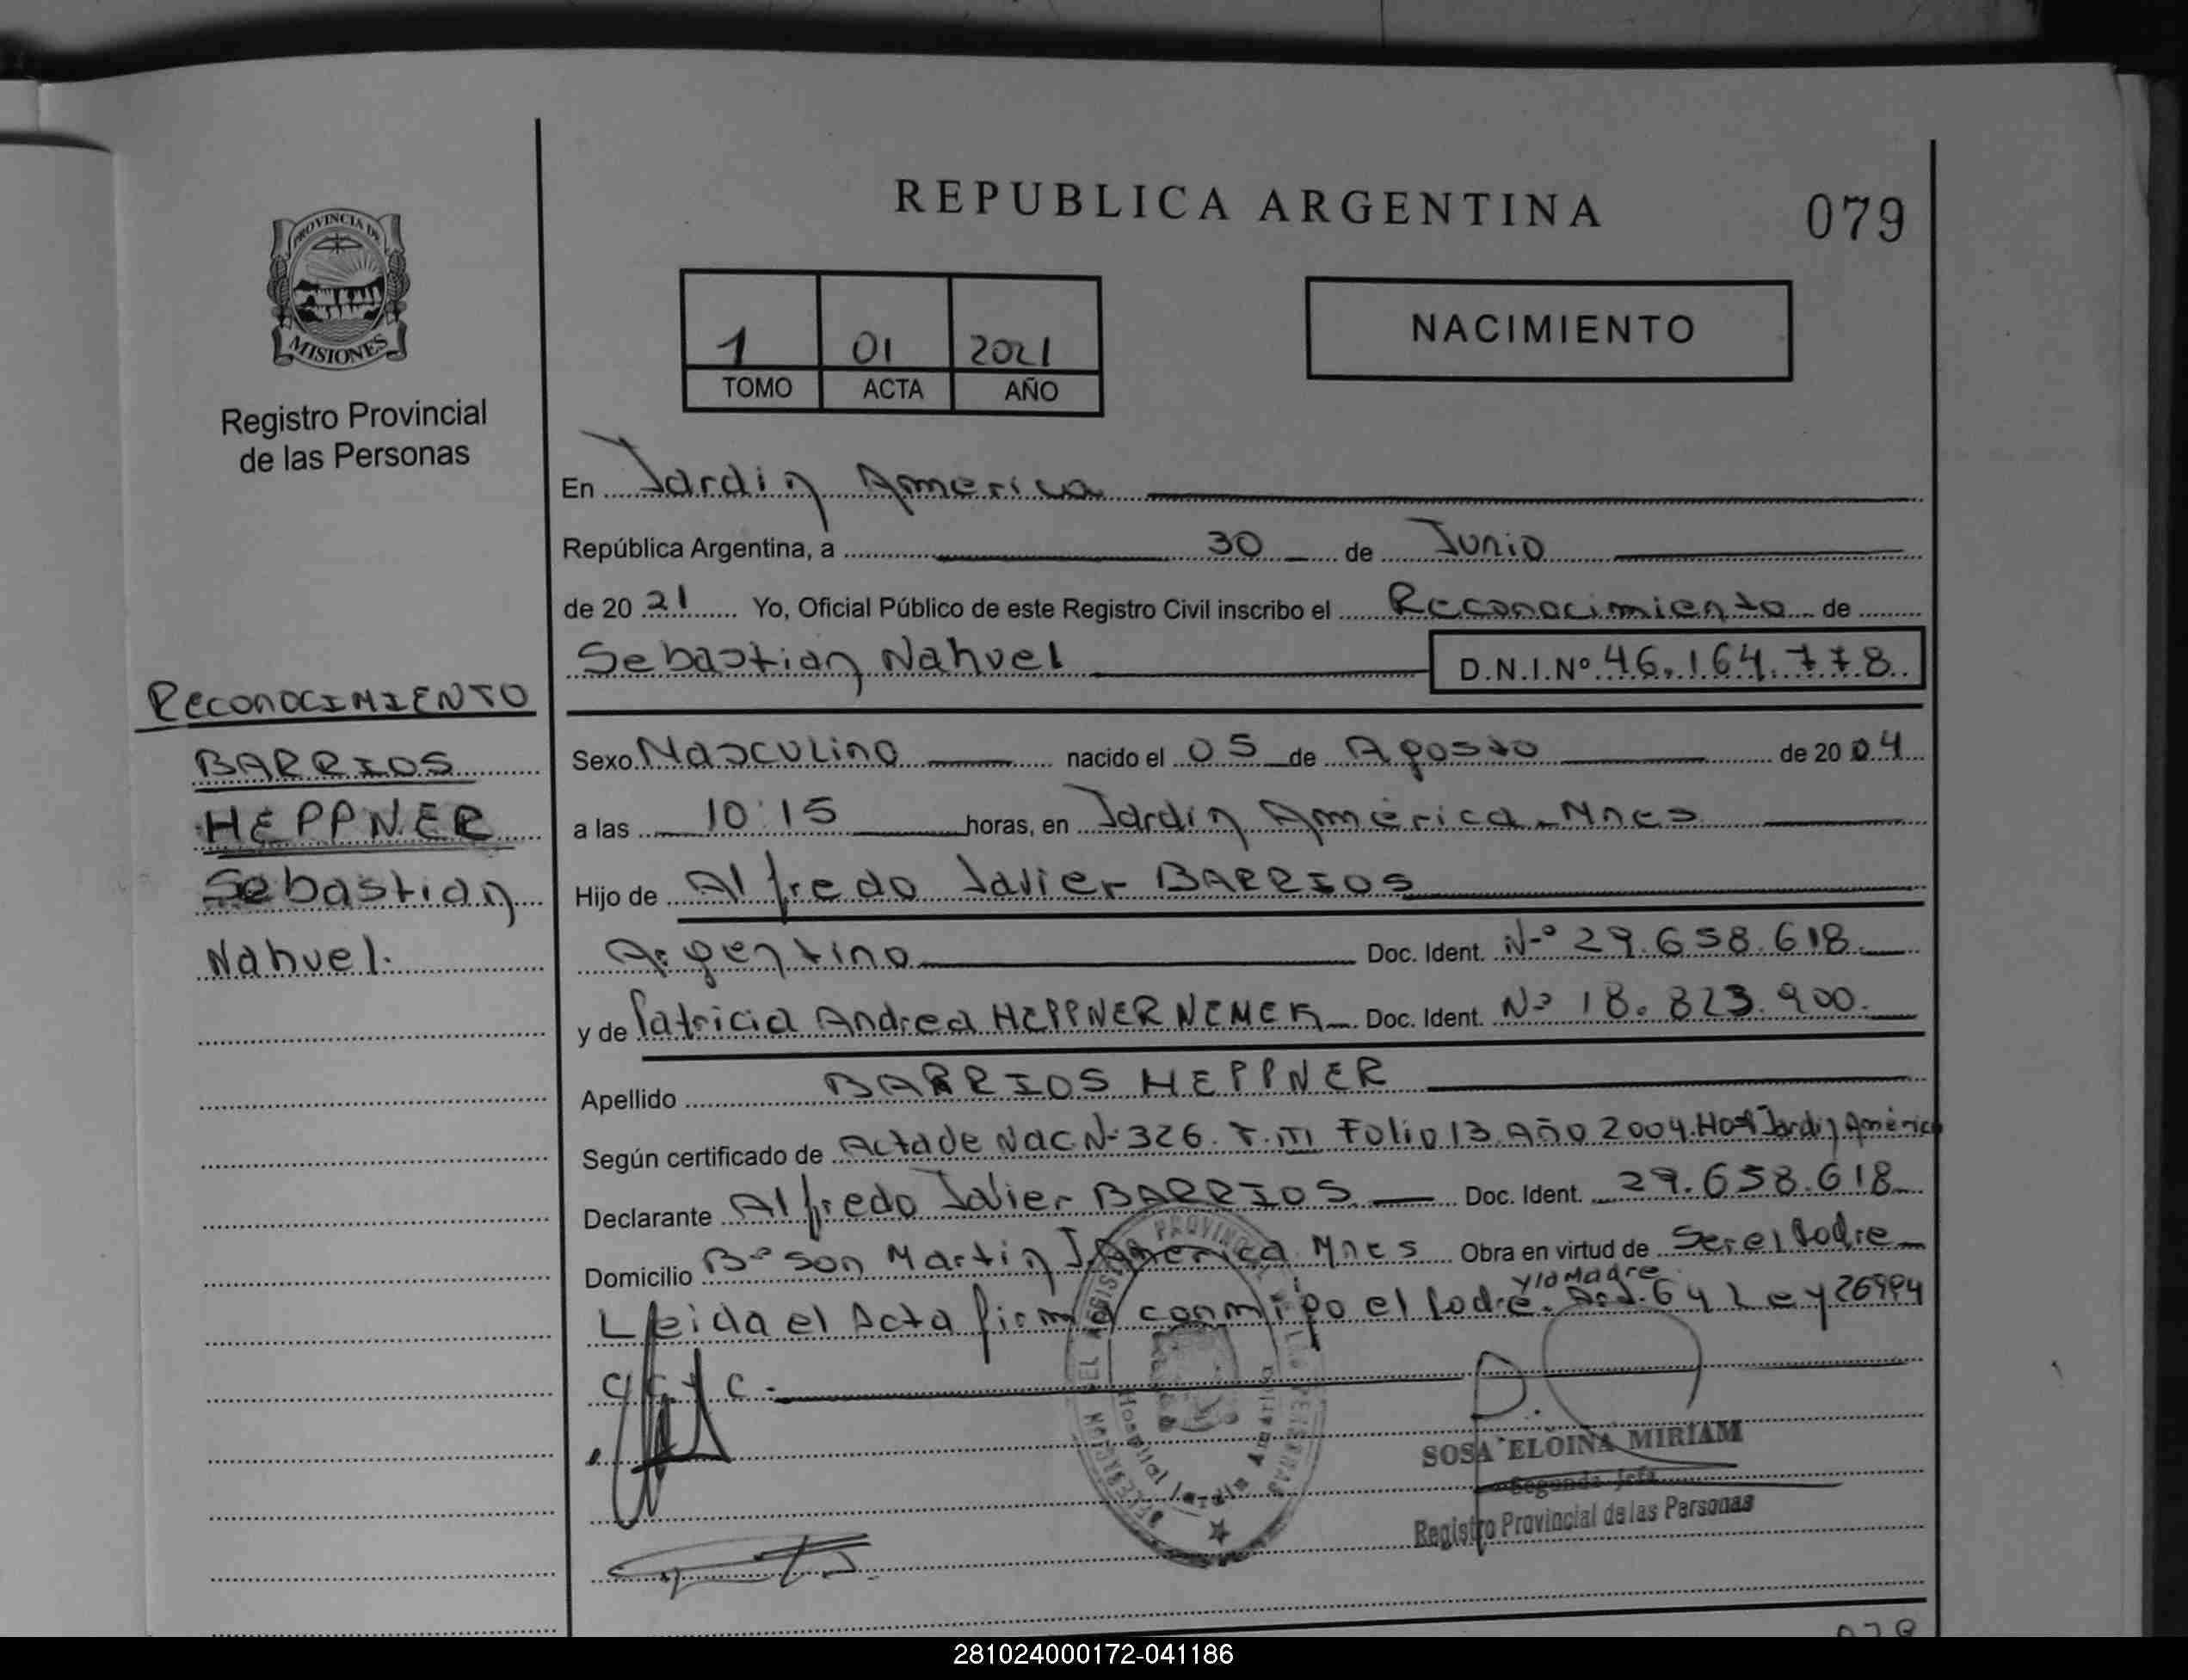 REPUBLICA ARGENTINA
079
PROVINCIA DE
MISIONES
Registro Provincial
de las Personas
1 01 2021
TOMO ACTA AÑO
NACIMIENTO
En Jardin America
República Argentina, a 30 de Junio
de 20 21 Yo, Oficial Público de este Registro Civil inscribo el Reconocimiento de
Sebastian Nahuel D.N.I.Nº 46.164.778
RECONOCIMIENTO
BARRIOS
HEPPNER
Sebastian
Nahuel.
Sexo Masculino nacido el 05 de Agosto de 20 04
a las 10:15 horas, en Jardín América - Mnes
Hijo de Alfredo Javier BARRIOS
Argentino Doc. Ident. Nº 29.658.618
y de Patricia Andrea HEPPNER NEMEK Doc. Ident. Nº 18.823.900
Apellido BARRIOS HEPPNER
Según certificado de Acta de Nac. Nº 326. T. III Folio 13 Año 2004. Hosp Jardin América
Declarante Alfredo Javier BARRIOS Doc. Ident. 29.658.618
Domicilio Bº San Martin J. America Mnes Obra en virtud de Ser el Padre
y la Madre
Leida el Acta firma conmigo el Padre. Art. 64 Ley 26994
C y C.-
DELEGACION DEL REGISTRO PROVINCIAL DE LAS PERSONAS
Hospital Jardín América
SOSA ELOINA MIRIAM
Segunda Jefa
Registro Provincial de las Personas
281024000172-041186